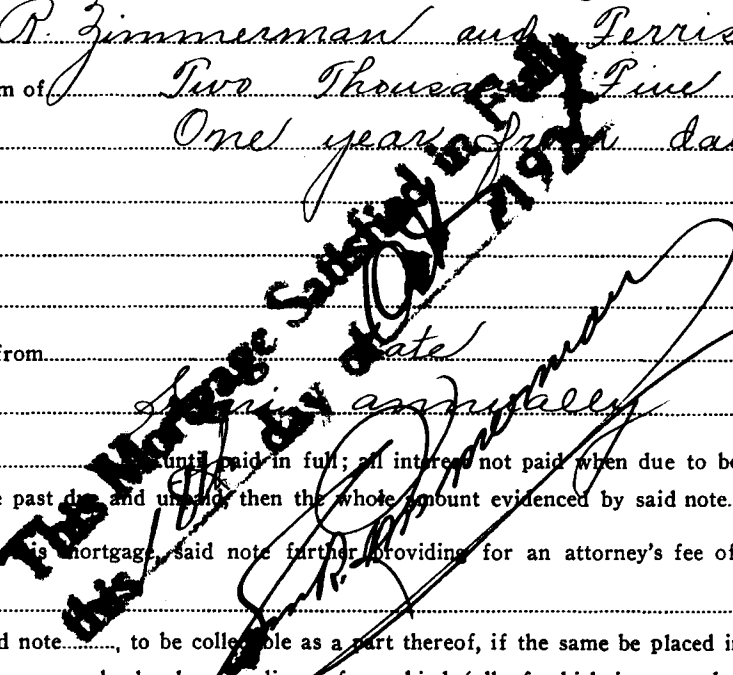 R. Zimmerman and Ferris
m of Two Thousand Five
One year from da
from date
Semi annually
until paid in full; all interest not paid when due to be
e past due and unpaid, then the whole amount evidenced by said note.
is mortgage, said note further providing for an attorney's fee of
d note........., to be collectible as a part thereof, if the same be placed in
This Mortgage Satisfied in Full
this day of 192
R. Zimmerman